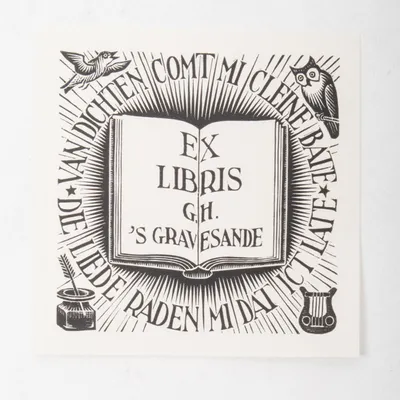 VAN DICHTEN COMT MI CLEINE BATE
★ DIE LIEDE RADEN MI DAT ICT LATE ★
EX
LIBRIS
G.H.
'S GRAVESANDE